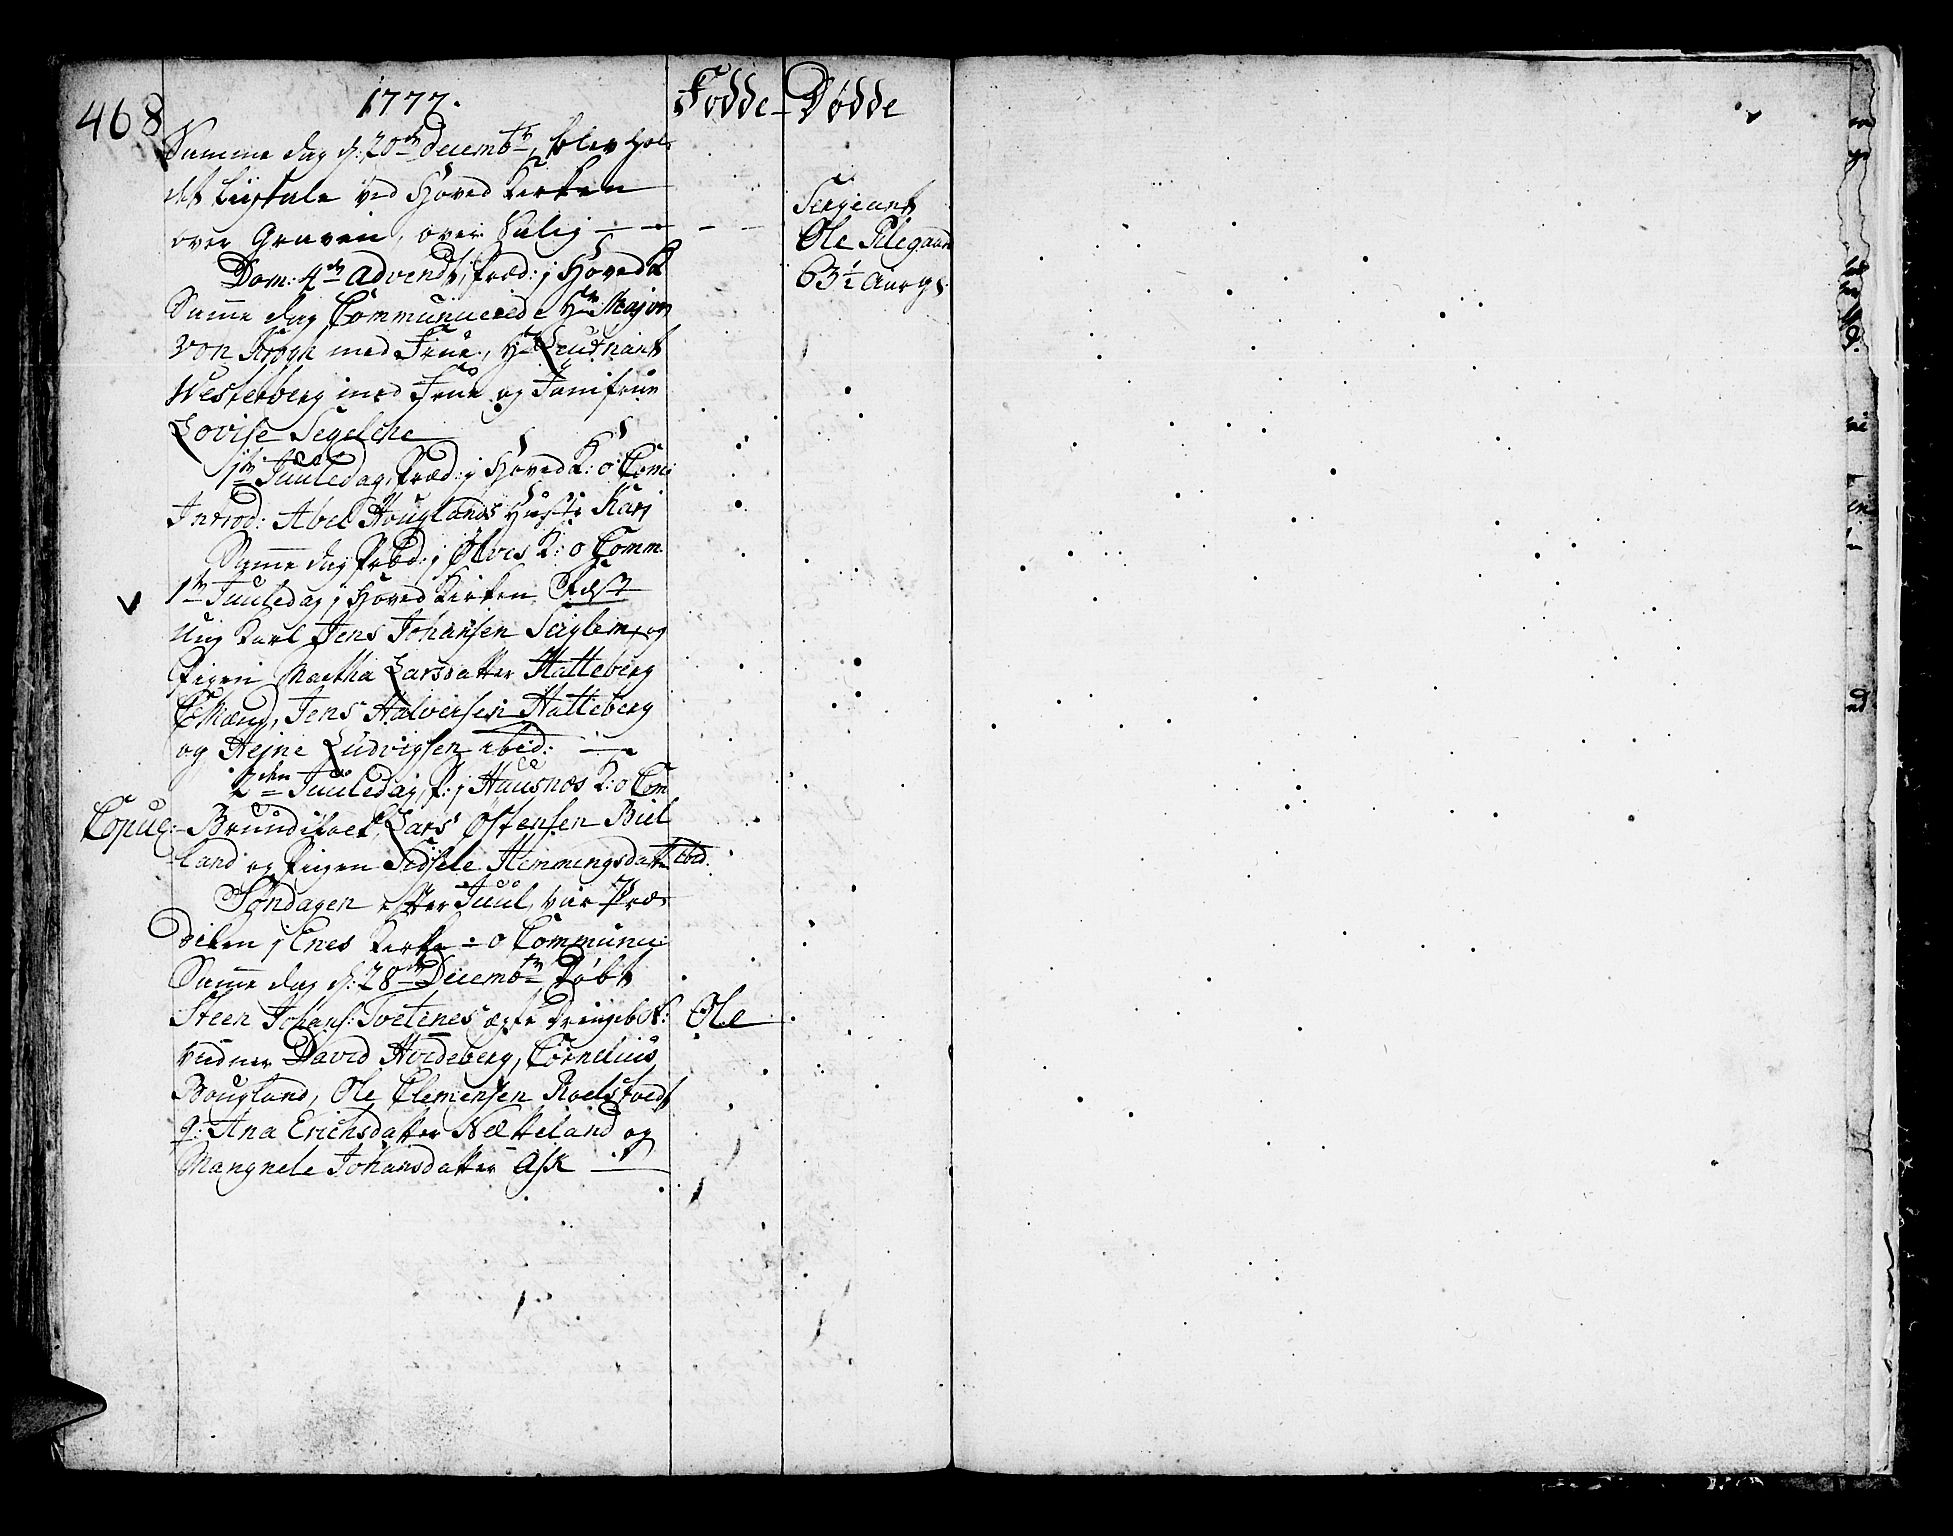 468
1777.
Fødde
Dødde
Samme dag d: 20de Decembr, blev hol-
det Liigtale ved Hoved Kirken
over Graven, over Salig
Sergeant
Ole Pilegaard
63½ Aar g:
Dom: 4de Advendt, Præd: j Hoved K
Samme dag Communicerede Hr Major
von Krogh med Frue, Hr Leutnant
Westerberg med Frue og Jomfrue
Lovise Segelche
1te Juuledag, Præd: j Hoved K: o Com:
Introd: Abel Houglands Hustr Karj
Samme dag Præd: j Ølves K: o Comm.
1te Juuledag j Hoved Kirken Fæst
Ung Karl Jens Johansen Seiglem og
Pigen Martha Larsdatter Hatteberg
C. Mænd, Jens Halversen Hatteberg
og Hejne Ludvigsen ibid:
2den Juuledag, P: j Huusnæs K: o Com
Copul:
Brundifolck Lars Østensen Biel
land og Pigen Sidsele Hemmingsdatt ibid.
Søndagen efter Juul, var Præ-
diken j Enes Kirke - o Communi:
Samme dag d: 28de Decembr Døbt
Steen Johans: Tvetenes ægte Drengeb N:
Ole
Vidner David Hvideberg, Cornelius
Bougland, Ole Clemensen Roelstvedt
q: Ana Erichsdatter Nætteland og
Mangnele Johansdatter Ask